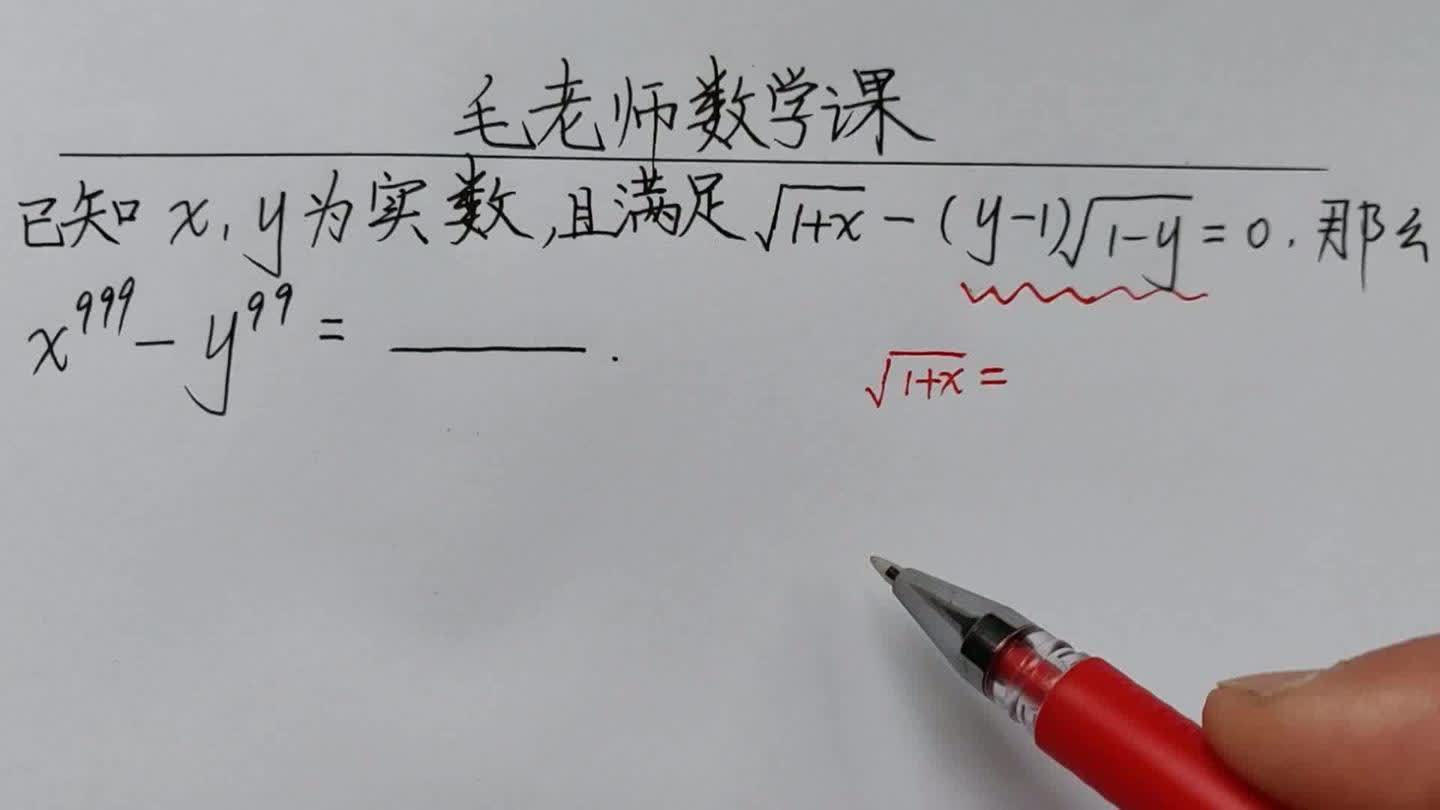 毛老师数学课
已知 x, y 为实数,且满足√(1+x) - (y-1)√(1-y) = 0. 那么
x^999 - y^99 = ______.
√(1+x) =